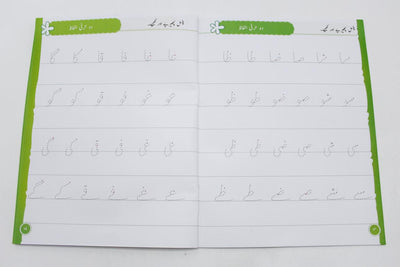 دو حرفی الفاظ
سا شا صا ضا طا ظا
سو شو صو ضو طو ظو
سی شی صی ضی طی ظی
سے شے صے ضے طے ظے
دو حرفی الفاظ
عا غا فا قا کا گا
عو غو فو قو کو گو
عی غی فی قی کی گی
عے غے فے قے کے گے